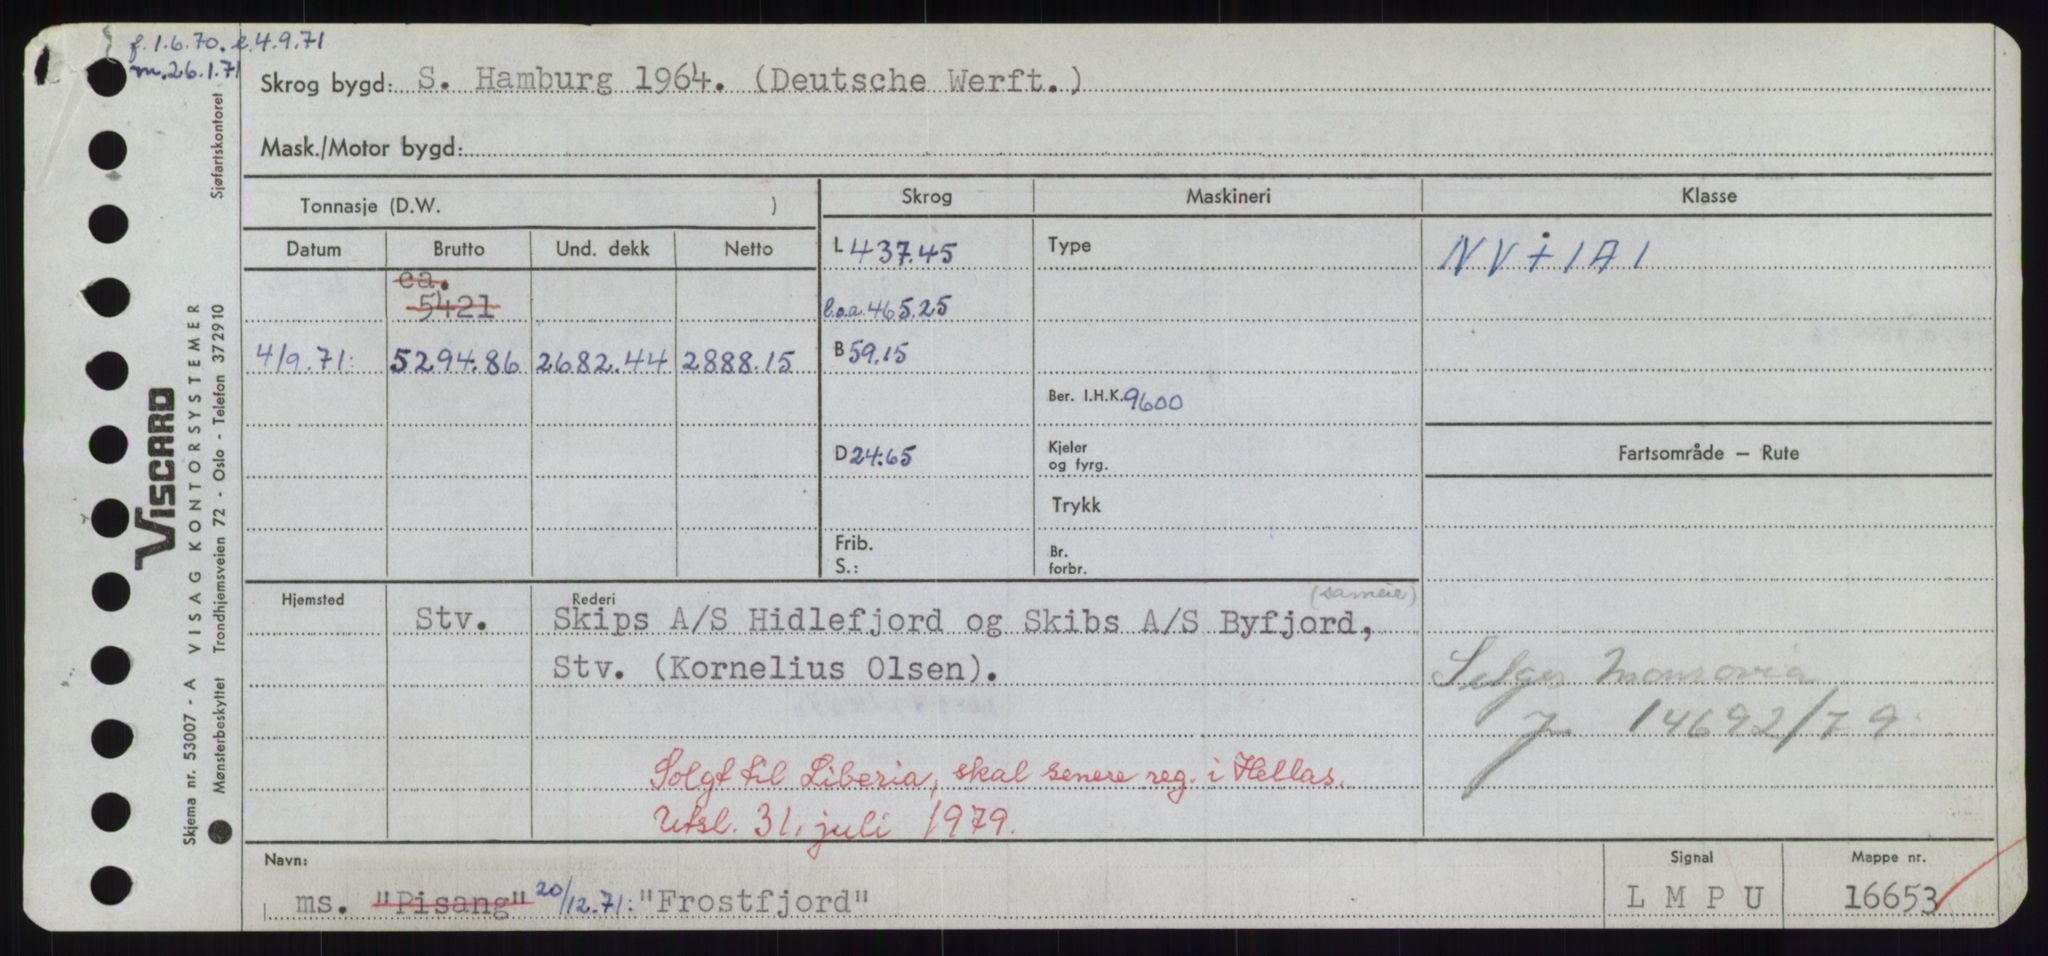 f. 1.6.70. e.4.9.71
m. 26.1.71
Skrog bygd: S. Hamburg 1964. (Deutsche Werft.)
Mask./Motor bygd:
Tonnasje (D.W. )
Skrog Maskineri Klasse
Datum Brutto Und. dekk Netto
L 437.45 Type NV + 1A1
ca.
5421
l.o.a. 465.25
4/9.71: 5294.86 2682.44 2888.15 B 59.15
Ber. I.H.K. 9600
D 24.65 Kjeler og fyrg.
Fartsområde — Rute
Trykk
Frib.
S.:
Br. forbr.
Hjemsted Rederi (sameie)
Stv. Skips A/S Hidlefjord og Skibs A/S Byfjord,
Stv. (Kornelius Olsen).
Selges Monrovia
J. 14692/79
Solgt til Liberia, skal senere reg. i Hellas.
Utsl. 31. juli 1979.
Navn: Signal Mappe nr.
ms. "Pisang" 20/12.71: "Frostfjord" LMPU 16653
Sjøfartskontoret
VISCARD
VISAG KONTORSYSTEMER
Trondhjemsveien 72 - Oslo - Telefon 372910
Skjema nr. 53007 - A
Mønsterbeskyttet